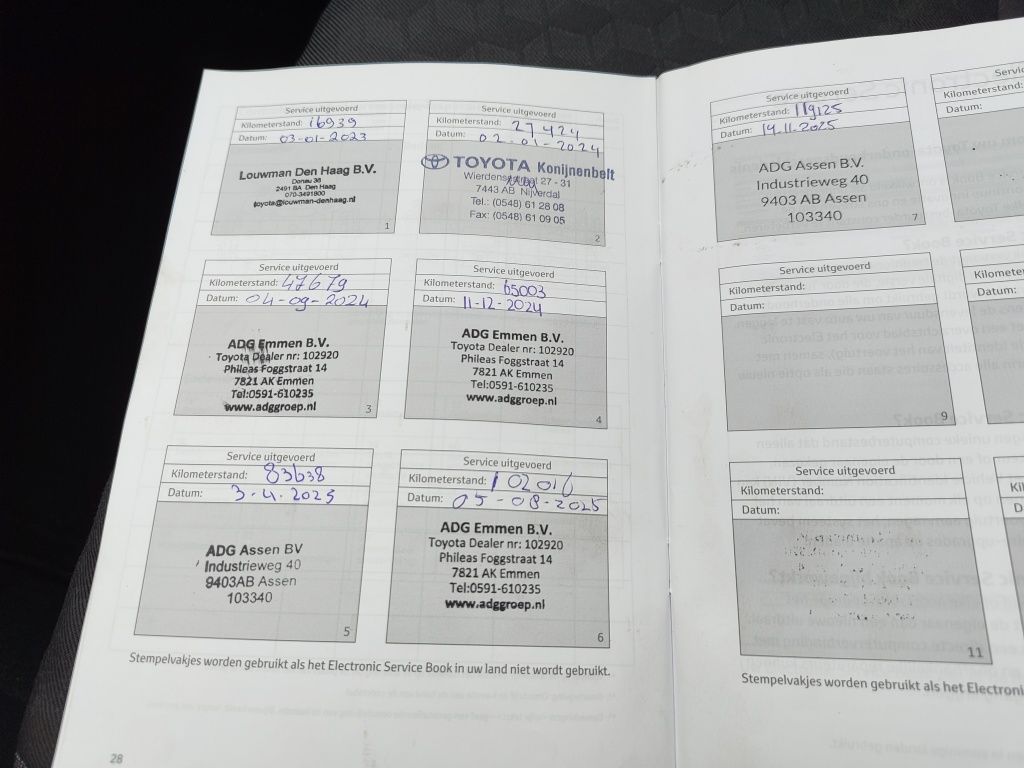 Service uitgevoerd
Kilometerstand: 16939
Datum: 03-01-2023
Louwman Den Haag B.V.
Donau 36
2491 BA Den Haag
070-3491800
toyota@louwman-denhaag.nl
1
Service uitgevoerd
Kilometerstand: 27424
Datum: 02-01-2024
TOYOTA Konijnenbelt
27 - 31
7443 AB Nijverdal
Tel.: (0548) 61 28 08
Fax: (0548) 61 09 05
2
Service uitgevoerd
Kilometerstand: 47679
Datum: 04-09-2024
ADG Emmen B.V.
Toyota Dealer nr: 102920
Phileas Foggstraat 14
7821 AK Emmen
Tel:0591-610235
www.adggroep.nl
3
Service uitgevoerd
Kilometerstand: 65003
Datum: 11-12-2024
ADG Emmen B.V.
Toyota Dealer nr: 102920
Phileas Foggstraat 14
7821 AK Emmen
Tel:0591-610235
www.adggroep.nl
4
Service uitgevoerd
Kilometerstand: 83638
Datum: 3-4-2025
ADG Assen BV
Industrieweg 40
9403AB Assen
103340
5
Service uitgevoerd
Kilometerstand: 102016
Datum: 05-08-2025
ADG Emmen B.V.
Toyota Dealer nr: 102920
Phileas Foggstraat 14
7821 AK Emmen
Tel:0591-610235
www.adggroep.nl
6
Stempelvakjes worden gebruikt als het Electronic Service Book in uw land niet wordt gebruikt.
28
Service uitgevoerd
Kilometerstand: 119125
Datum: 14.11.2025
ADG Assen B.V.
Industrieweg 40
9403 AB Assen
103340
7
Kilometerstand:
Datum:
Service uitgevoerd
Kilometerstand:
Datum:
9
Datum:
Service uitgevoerd
Kilometerstand:
Datum:
11
Stempelvakjes worden gebruikt als het